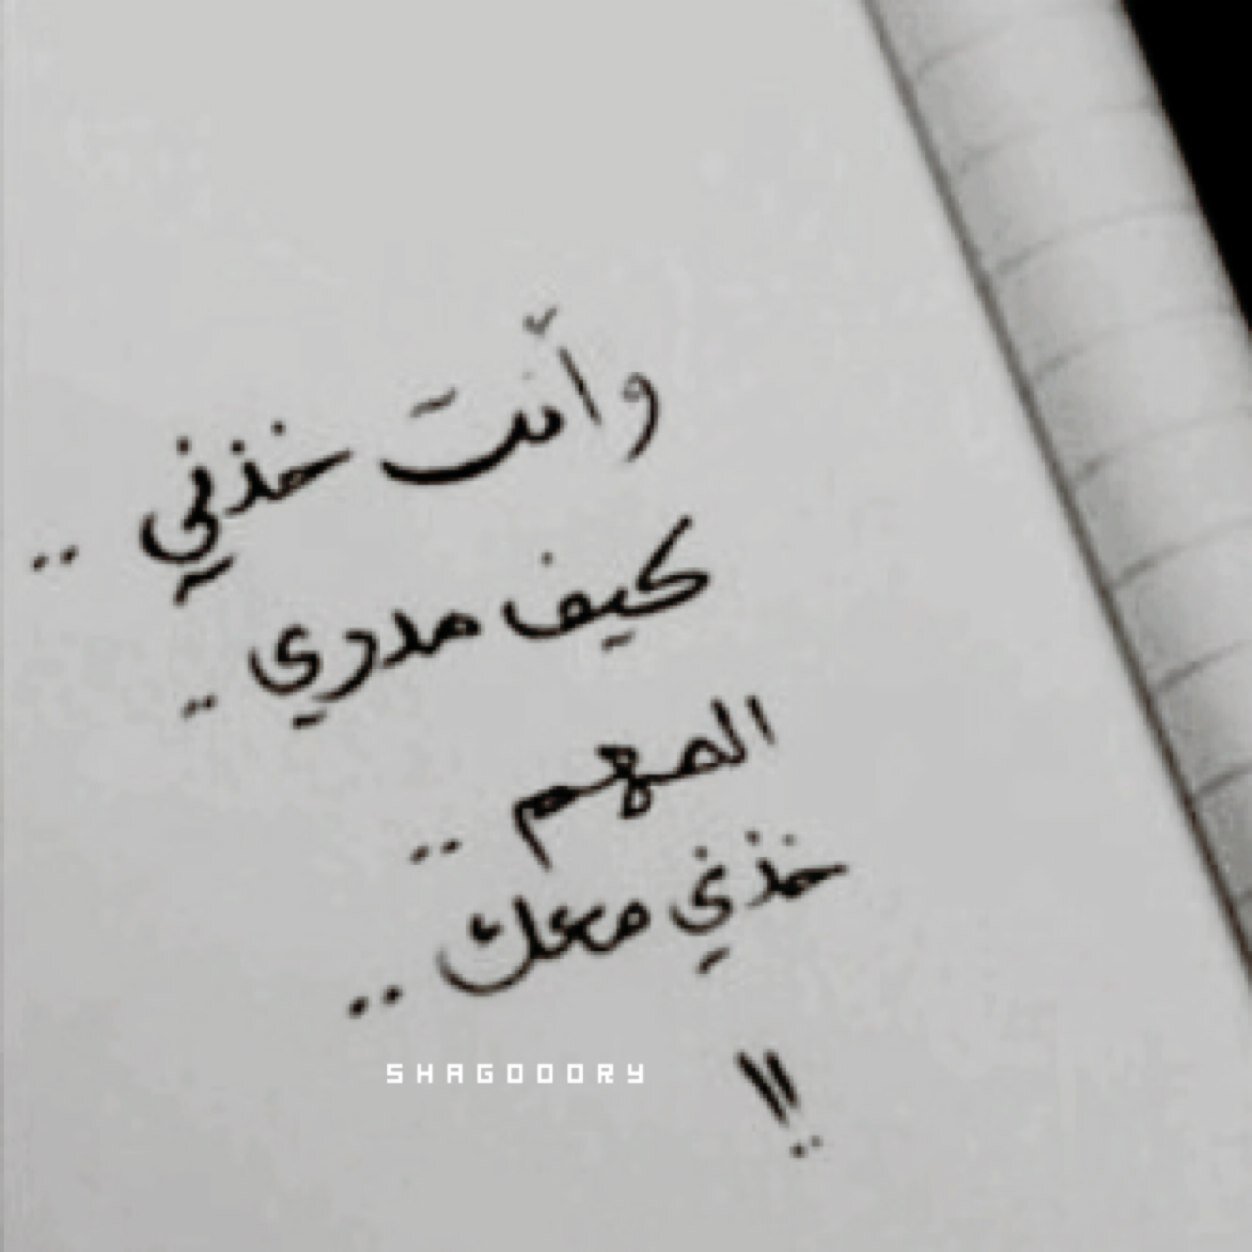 وأنت خذني ..
كيف مدري ..
المهم ..
خذني معك ..
!!
SHAGOOORY